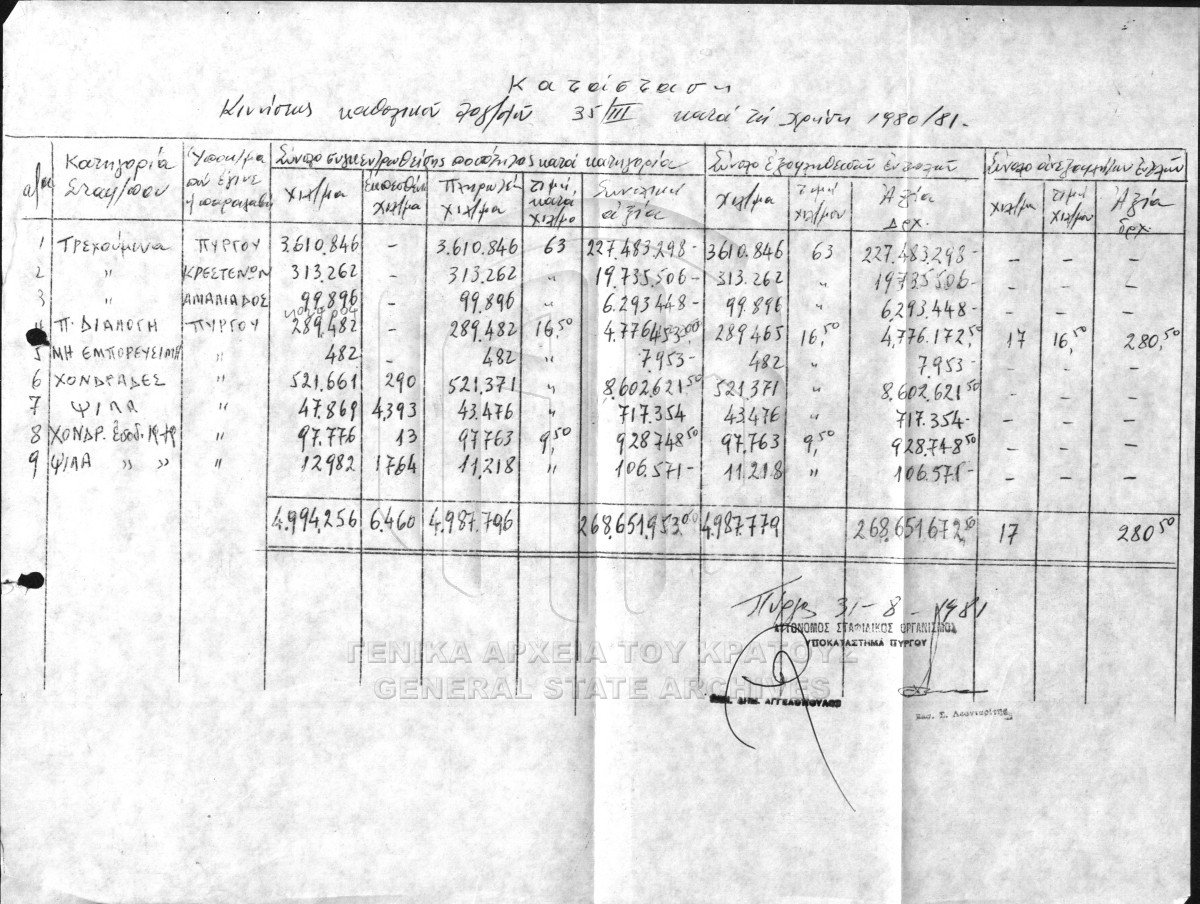 Κατάστασις
Κινήσεως καθολικού λογ/σμού 35/III κατά τή χρήση 1980/81.
α/α Κατηγορία Σταφ/που Υποκ/μα πού έγινε ή παραλαβή Σύνολο συγκεντρωθείσης ποσότητος κατά κατηγορία Σύνολο εξοφληθεισών Σύνολο
Χιλ/μα Χιλ/μα Πληρωτέα Χιλ/μα τιμή κατά χιλ/μο Συνολική αξία Χιλ/μα τιμή χιλ/μου Αξία Δρχ. Χιλ/μα τιμή χιλ/μου Αξία Δρχ.
1 ΤΡΕΧΟΥΜΕΝΑ ΠΥΡΓΟΥ 3.610.846 - 3.610.846 63 227.483.298- 3610.846 63 227.483.298- - - -
2 " ΚΡΕΣΤΕΝΩΝ 313.262 - 313.262 " 19.735.506- 313.262 " 19735506- - - -
3 " ΑΜΑΛΙΑΔΟΣ 99.896 - 99.896 " 6.293.448- 99.896 " 6.293.448- - - -
4 Π. ΔΙΑΛΟΓΗ ΠΥΡΓΟΥ 289.482 - 289.482 16,50 4.776453,00 289465 16,50 4,776.172,50 17 16,50 280,50
5 ΜΗ ΕΜΠΟΡΕΥΣΙΜΗ " 482 - 482 " 7.953- 482 " 7.953- - - -
6 ΧΟΝΔΡΑΔΕΣ " 521.661 290 521.371 " 8.602.621,50 521.371 " 8.602.621,50 - - -
7 ΨΙΛΑ " 47.869 4,393 43.476 " 717.354 43476 " 717.354- - - -
8 ΧΟΝΔΡ. Εσοδ. 19-79 " 97.776 13 97763 9,50 928748,50 97.763 9,50 928.748,50 - - -
9 ΨΙΛΑ " " " 12982 1764 11,218 " 106.571- 11.218 " 106.571- - - -
4.994.256 6.460 4.987.796 268.651.953,00 4.987.779 268.651.672,50 17 280,50
Πύργος 31-8-1981
ΑΥΤΟΝΟΜΟΣ ΣΤΑΦΙΔΙΚΟΣ ΟΡΓΑΝΙΣΜΟΣ
ΥΠΟΚΑΤΑΣΤΗΜΑ ΠΥΡΓΟΥ
ΓΕΝΙΚΑ ΑΡΧΕΙΑ ΤΟΥ ΚΡΑΤΟΥΣ
GENERAL STATE ARCHIVES
ΔΗΜ. ΑΓΓΕΛΟΠΟΥΛΟΣ